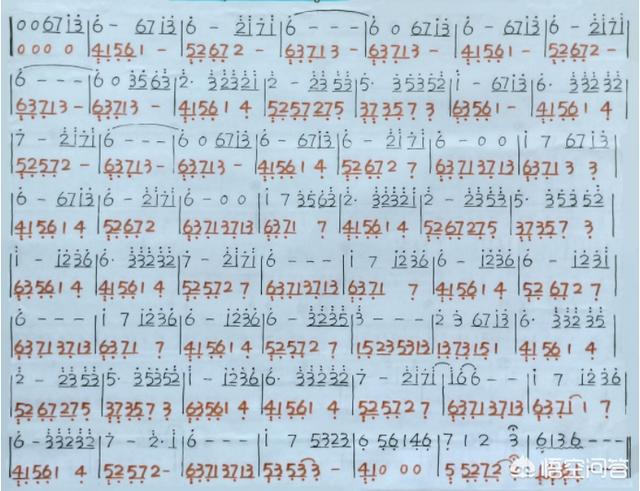 |0 0 6 7 1 3|6 - 6 7 1 3|6 - 2 1 7 1|6 - - -|6 0 6 7 1 3|6 - 6 7 1 3|6 - 2 1 7 1|
0 0 0 0 4 1 5 6 1 - 5 2 6 7 2 - 6 3 7 1 3 - 6 3 7 1 3 - 4 1 5 6 1 - 5 2 6 7 2 -
|6 - - -|6 0 3 5 6 3|2· 3 2 3 2 1|2 - 2 3 5 3|5· 3 5 3 5 2|1 - 6 7 1 3|6· 3 3 2 3 2|
6 3 7 1 3 - 6 3 7 1 3 - 4 1 5 6 1 4 5 2 5 7 2 7 5 3 7 3 5 7 3 6 3 5 6 1 - 4 1 5 6 1 4
|7 - 2 1 7 1|6 - - -|6 0 6 7 1 3|6 - 6 7 1 3|6 - 2 1 7 1|6 - 0 0|1 7 6 7 1 3|
5 2 5 7 2 - 6 3 7 1 3 - 6 3 7 1 3 - 4 1 5 6 1 4 5 2 6 7 2 7 6 3 7 1 3 7 1 3 6 3 7 1 3 3
|6 - 6 7 1 3|6 - 2 1 7 1|6 - 0 0|1 7 3 5 6 3|2· 3 2 3 2 1|2 - 2 3 5 3|5· 3 5 3 5 2|
4 1 5 6 1 4 5 2 6 7 2 6 3 7 1 3 7 1 3 6 3 7 1 7 4 1 5 6 1 4 5 2 6 7 2 7 5 3 7 3 5 7 3
|1 - 1 2 3 6|6· 3 3 2 3 2|7 - 2 1 7 1|6 - - -|1 7 1 2 3 6|6 - 1 2 3 6|6 - 1 2 3 1|
6 3 5 6 1 4 4 1 5 6 1 4 5 2 5 7 2 7 6 3 7 1 3 7 1 3 6 3 7 1 7 4 1 5 6 1 4 5 2 6 7 2 7
|6 - - -|1 7 1 2 3 6|6 - 1 2 3 6|6 - 3 2 3 5|3 - - -|2 3 6 7 1 3|6· 3 3 2 3 5|
6 3 7 1 3 7 1 3 6 3 7 1 7 4 1 5 6 1 4 5 2 5 7 2 7 1 5 2 3 5 3 1 3 1 3 7 3 1 5 1 4 1 5 6 1 4
|2 - 2 3 5 3|5· 3 5 3 5 2|1 - 1 2 3 6|6· 3 3 2 3 2|7 - 2 1 7 1|1 6 6 - -|1 7 1 2 3 6|
5 2 6 7 2 7 5 3 7 3 5 7 3 6 3 5 6 1 4 4 1 5 6 1 4 5 2 5 7 2 7 6 3 7 1 3 7 1 3 6 3 7 1 1 7
|6 - 3 3 2 3 2|7 - 2· 1|6 - - -|1 7 5 3 2 3|6 5 6 1 4 6|7 1 2 3|6 1 3 6 - - -|
4 1 5 6 1 4 5 2 5 7 2 - 6 3 7 1 3 7 1 3 5 3 5 3 3 - 4 1 0 0 0 5 5 2 7 2
悟空问答